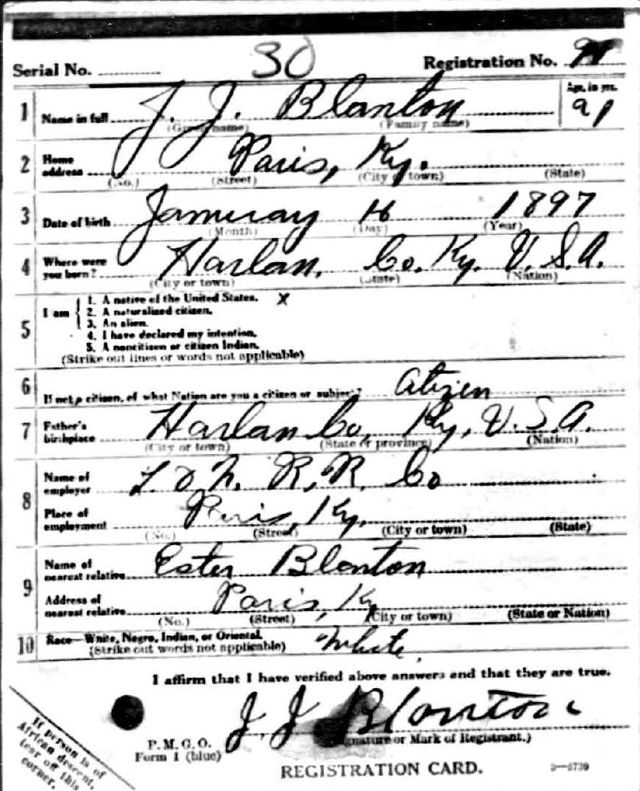 Serial No. 30 Registration No.
1 Name in full J. J. Blanton Age, in yrs. 21
(Given name) (Family name)
2 Home address Paris, Ky.
(No.) (Street) (City or town) (State)
3 Date of birth Januray 16 1897
(Month) (Day) (Year)
4 Where were you born? Harlan. Co. Ky. U.S.A.
(City or town) (State) (Nation)
5 I am
1. A native of the United States. X
2. A naturalized citizen.
3. An alien.
4. I have declared my intention.
5. A noncitizen or citizen Indian.
(Strike out lines or words not applicable)
6 If not a citizen, of what Nation are you a citizen or subject? Citizen
7 Father's birthplace Harlan Co, Ky, U.S.A.
(City or town) (State or province) (Nation)
8 Name of employer L & N. R. R. Co
Place of employment Paris, Ky.
(No.) (Street) (City or town) (State)
9 Name of nearest relative Ester Blanton
Address of nearest relative Paris, Ky
(No.) (Street) (City or town) (State or Nation)
10 Race—White, Negro, Indian, or Oriental. White
(Strike out words not applicable)
I affirm that I have verified above answers and that they are true.
J J Blanton
P. M. G. O. (Signature or Mark of Registrant.)
Form 1 (blue)
REGISTRATION CARD. 3—5739
If person is of
African descent,
tear off this
corner.